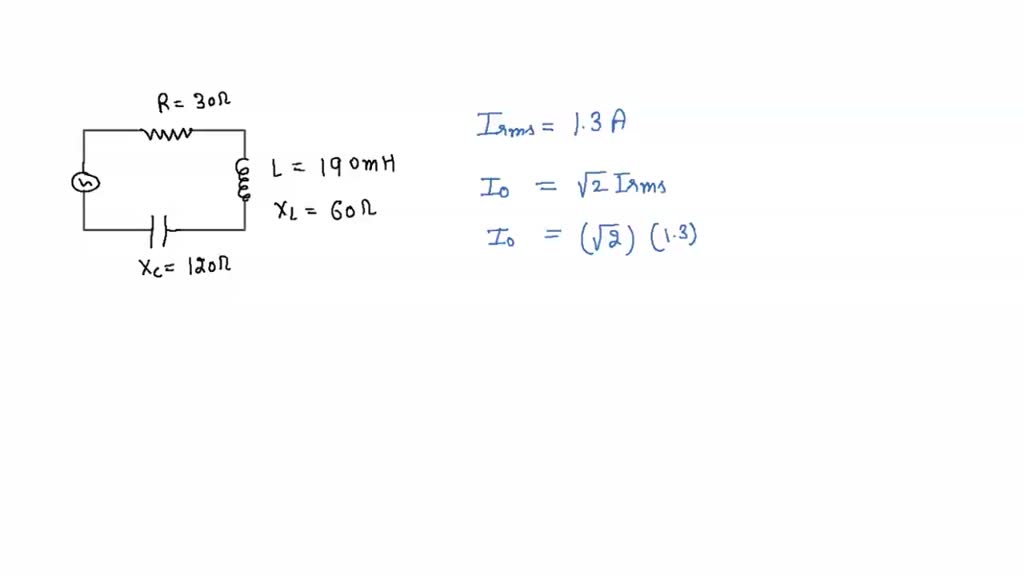 R = 30Ω
L = 190mH
XL = 60Ω
Xc = 120Ω
Irms = 1.3 A
I0 = √2 Irms
I0 = (√2) (1.3)